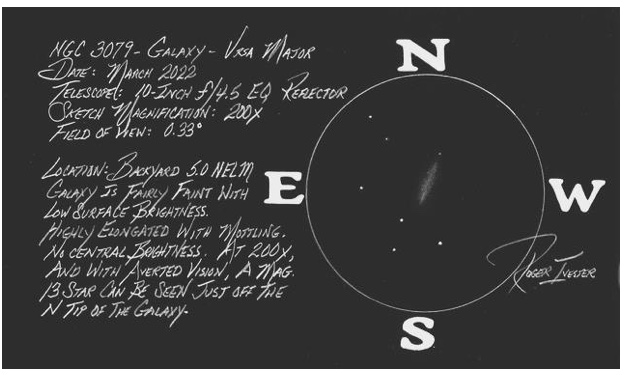 NGC 3079 - GALAXY - URSA MAJOR
DATE: MARCH 2022
TELESCOPE: 10-INCH f/4.5 EQ REFLECTOR
SKETCH MAGNIFICATION: 200X
FIELD OF VIEW: 0.33°
LOCATION: BACKYARD 5.0 NELM
GALAXY IS FAIRLY FAINT WITH
LOW SURFACE BRIGHTNESS.
HIGHLY ELONGATED WITH MOTTLING.
NO CENTRAL BRIGHTNESS. AT 200X,
AND WITH AVERTED VISION, A MAG.
13 STAR CAN BE SEEN JUST OFF THE
N TIP OF THE GALAXY.
N
E
W
S
ROGER IVESTER